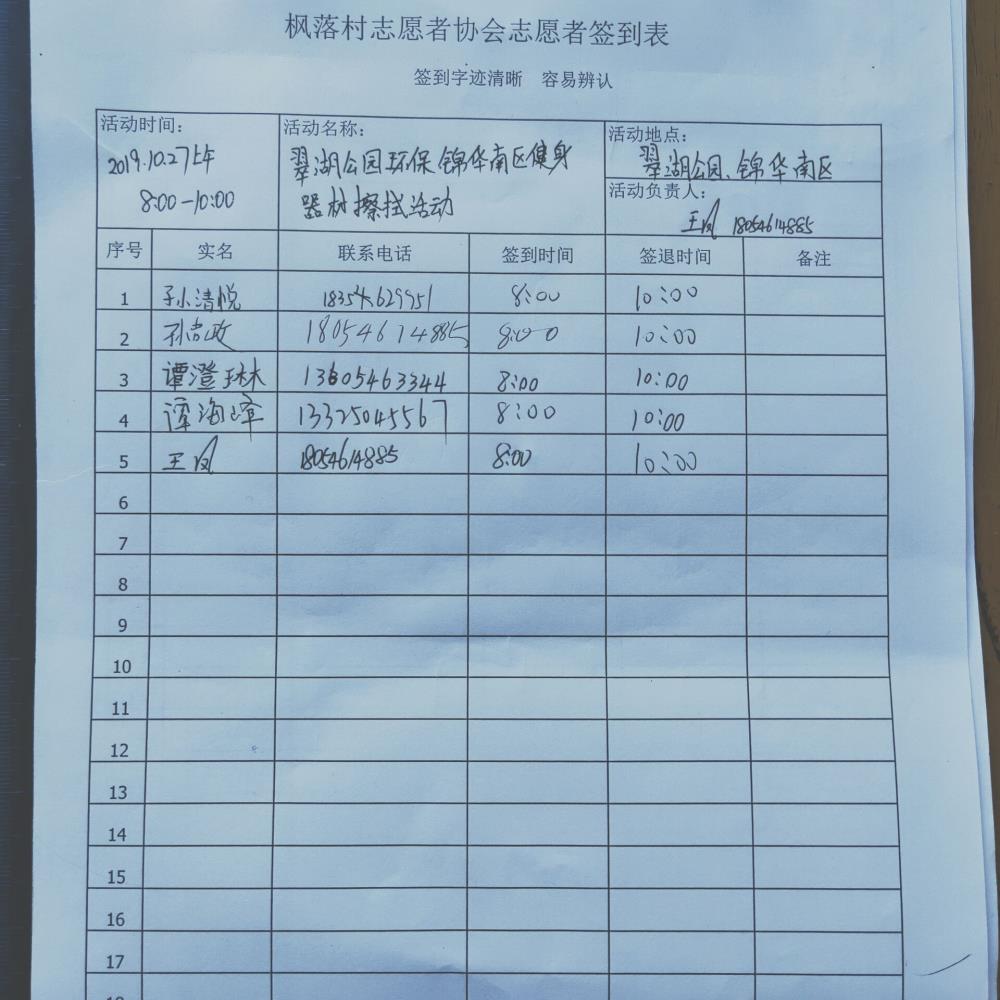 枫落村志愿者协会志愿者签到表
签到字迹清晰 容易辨认
活动时间： 活动名称： 活动地点：
2019.10.27上午 翠湖公园环保锦华南区健身 翠湖公园、锦华南区
8:00-10:00 器材擦拭活动 活动负责人：
王凤 18054614885
序号 实名 联系电话 签到时间 签退时间 备注
1 孙清悦 18354629951 8:00 10:00
2 18054614885 8:00 10:00
3 谭澄琳 13605463344 8:00 10:00
4 谭海峰 13325045567 8:00 10:00
5 王凤 18054614885 8:00 10:00
6
7
8
9
10
11
12
13
14
15
16
17